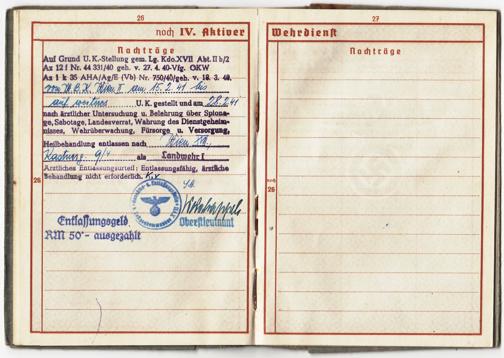 26
noch IV. Aktiver
Nachträge
Auf Grund U.K.-Stellung gem. Lg. Kdo.XVII Abt.II b/2
Az 12 f Nr. 44 331/40 geh. v. 27. 4. 40-Vfg. OKW
Az 1 k 35 AHA/Ag/E (Vb) Nr. 750/40/geh. v. 18. 3. 40.
von W.B.K. Wien I am 15.2.41 bis
auf weiteres U.K. gestellt und am 28.2.41
nach ärztlicher Untersuchung u. Belehrung über Spiona-
ge, Sabotage, Landesverrat, Wahrung des Dienstgeheim-
nisses, Wehrüberwachung, Fürsorge u. Versorgung,
Heilbehandlung entlassen nach Wien
9/4 als Landwehr I
Ärztliches Entlassungsurteil: Entlassungsfähig, ärztliche
Behandlung nicht erforderlich.
26
Oberstleutnant
Entlassungsgeld
RM 50'- ausgezahlt
27
Wehrdienst
Nachträge